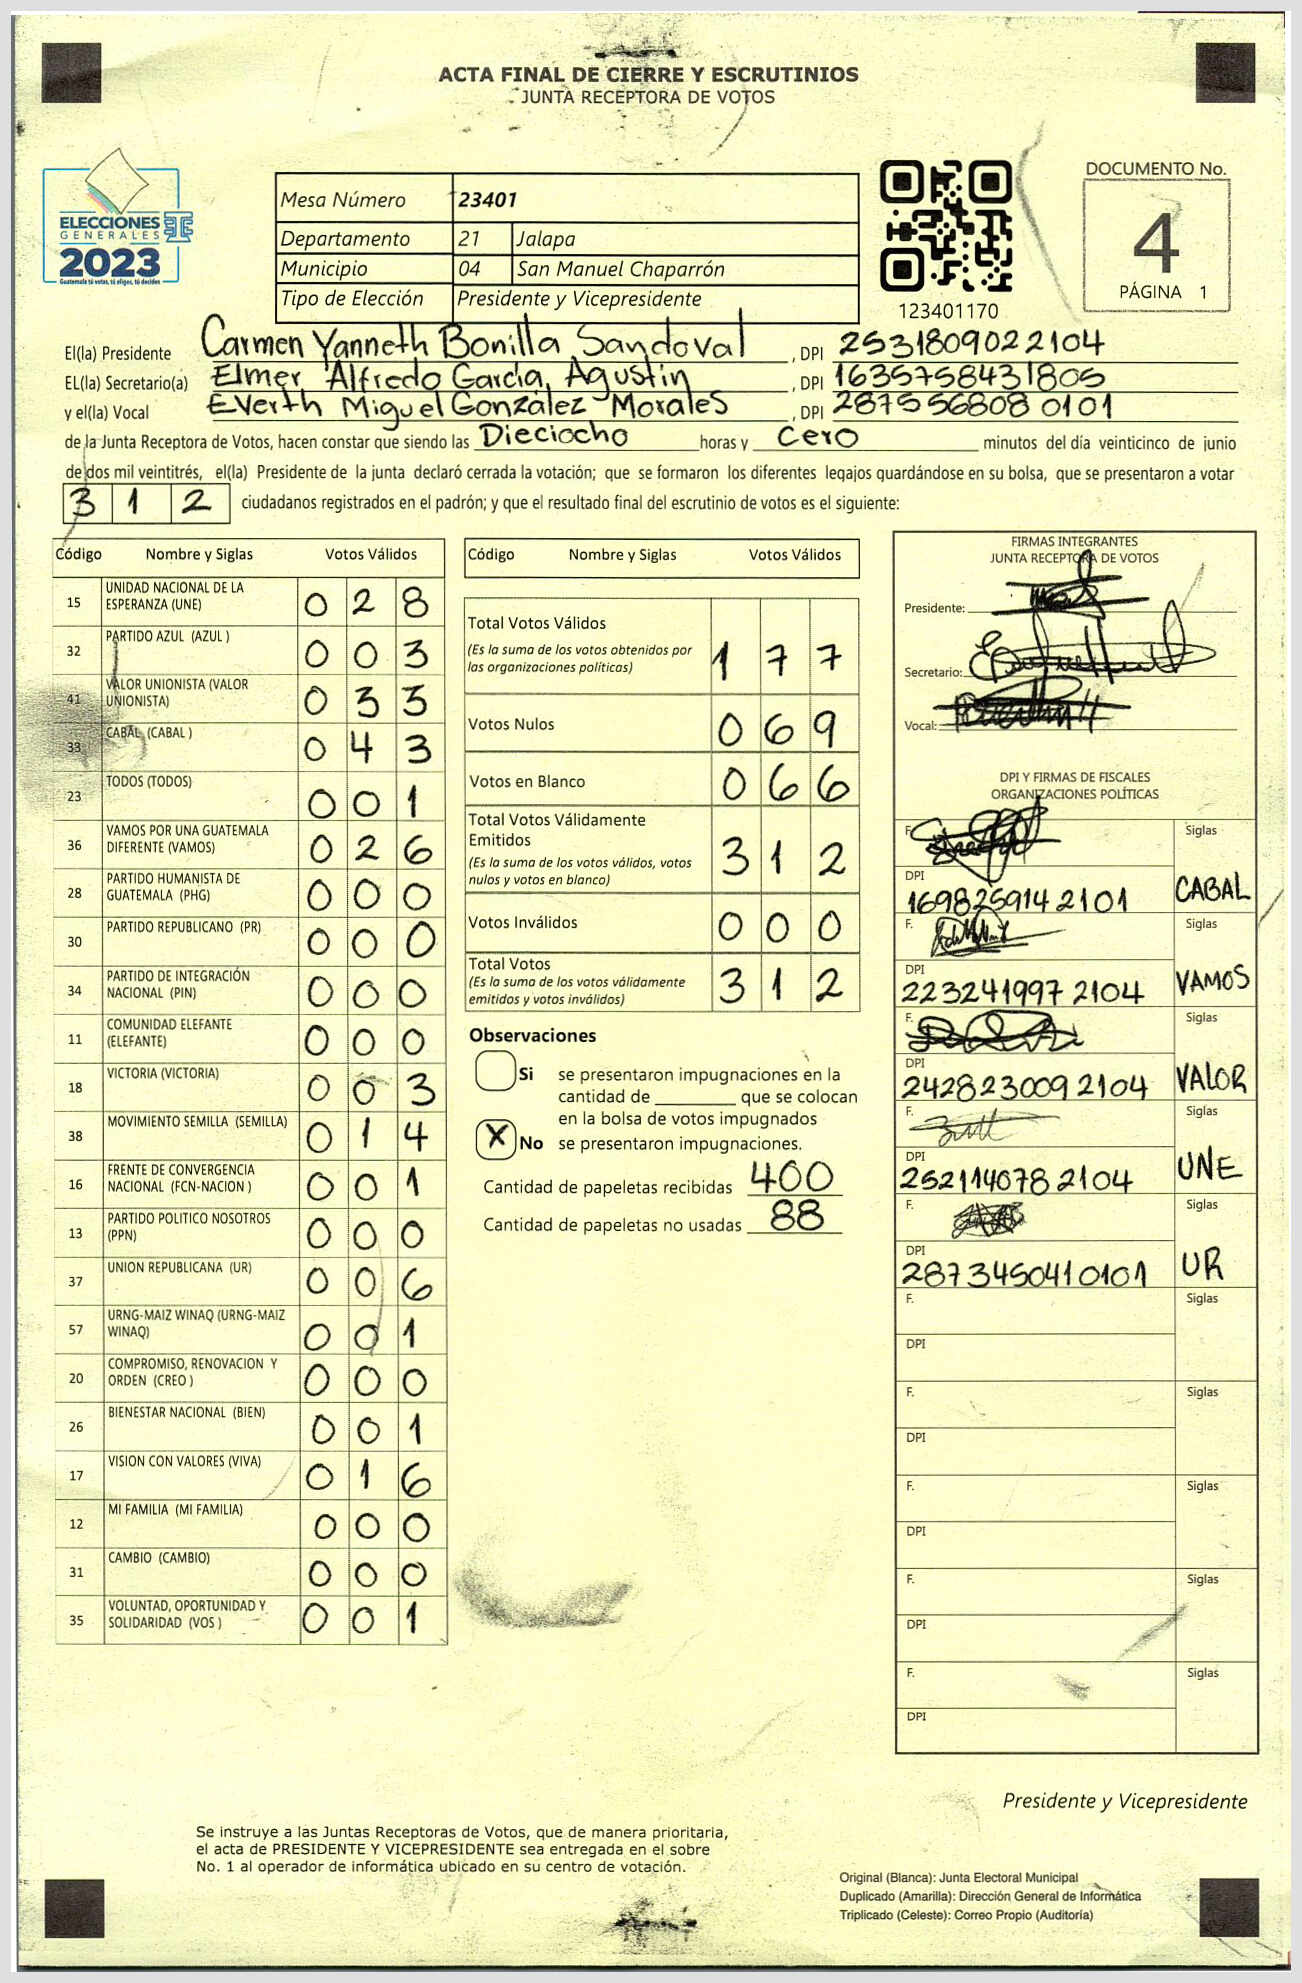 ACTA FINAL DE CIERRE Y ESCRUTINIOS
JUNTA RECEPTORA DE VOTOS
ELECCIONES
GENERALES
2023
Guatemala tú votas, tú eliges, tú decides
Mesa Número 23401
Departamento 21 Jalapa
Municipio 04 San Manuel Chaparrón
Tipo de Elección Presidente y Vicepresidente
123401170
DOCUMENTO No.
4
PÁGINA 1
El(la) Presidente Carmen Yanneth Bonilla Sandoval, DPI 2531809022104
EL(la) Secretario(a) Elmer Alfredo García, Agustin, DPI 1635758431805
y el(la) Vocal Everth Miguel González Morales, DPI 2875568080101
de la Junta Receptora de Votos, hacen constar que siendo las Dieciocho horas y Cero minutos del día veinticinco de junio
de dos mil veintitrés, el(la) Presidente de la junta declaró cerrada la votación; que se formaron los diferentes legajos guardándose en su bolsa, que se presentaron a votar
312 ciudadanos registrados en el padrón; y que el resultado final del escrutinio de votos es el siguiente:
Código Nombre y Siglas Votos Válidos
15 UNIDAD NACIONAL DE LA ESPERANZA (UNE) 028
32 PARTIDO AZUL (AZUL ) 003
41 VALOR UNIONISTA (VALOR UNIONISTA) 033
33 CABAL (CABAL ) 043
23 TODOS (TODOS) 001
36 VAMOS POR UNA GUATEMALA DIFERENTE (VAMOS) 026
28 PARTIDO HUMANISTA DE GUATEMALA (PHG) 000
30 PARTIDO REPUBLICANO (PR) 000
34 PARTIDO DE INTEGRACIÓN NACIONAL (PIN) 000
11 COMUNIDAD ELEFANTE (ELEFANTE) 000
18 VICTORIA (VICTORIA) 003
38 MOVIMIENTO SEMILLA (SEMILLA) 014
16 FRENTE DE CONVERGENCIA NACIONAL (FCN-NACION ) 001
13 PARTIDO POLITICO NOSOTROS (PPN) 000
37 UNION REPUBLICANA (UR) 006
57 URNG-MAIZ WINAQ (URNG-MAIZ WINAQ) 001
20 COMPROMISO, RENOVACION Y ORDEN (CREO ) 000
26 BIENESTAR NACIONAL (BIEN) 001
17 VISION CON VALORES (VIVA) 016
12 MI FAMILIA (MI FAMILIA) 000
31 CAMBIO (CAMBIO) 000
35 VOLUNTAD, OPORTUNIDAD Y SOLIDARIDAD (VOS ) 001
Código Nombre y Siglas Votos Válidos
Total Votos Válidos 177
(Es la suma de los votos obtenidos por
las organizaciones políticas)
Votos Nulos 069
Votos en Blanco 066
Total Votos Válidamente
Emitidos 312
(Es la suma de los votos válidos, votos
nulos y votos en blanco)
Votos Inválidos 000
Total Votos 312
(Es la suma de los votos válidamente
emitidos y votos inválidos)
Observaciones
Si se presentaron impugnaciones en la
cantidad de ________ que se colocan
en la bolsa de votos impugnados
X No se presentaron impugnaciones.
Cantidad de papeletas recibidas 400
Cantidad de papeletas no usadas 88
FIRMAS INTEGRANTES
JUNTA RECEPTORA DE VOTOS
Presidente:
Secretario:
Vocal:
DPI Y FIRMAS DE FISCALES
ORGANIZACIONES POLÍTICAS
F. Siglas
DPI
169825914 2101 CABAL
F. Siglas
DPI
223241997 2104 VAMOS
F. Siglas
DPI
242823009 2104 VALOR
F. Siglas
DPI
252114078 2104 UNE
F. Siglas
DPI
2873450410101 UR
F. Siglas
DPI
F. Siglas
DPI
F. Siglas
DPI
F. Siglas
DPI
F. Siglas
DPI
Presidente y Vicepresidente
Se instruye a las Juntas Receptoras de Votos, que de manera prioritaria,
el acta de PRESIDENTE Y VICEPRESIDENTE sea entregada en el sobre
No. 1 al operador de informática ubicado en su centro de votación.
Original (Blanca): Junta Electoral Municipal
Duplicado (Amarilla): Dirección General de Informática
Triplicado (Celeste): Correo Propio (Auditoría)